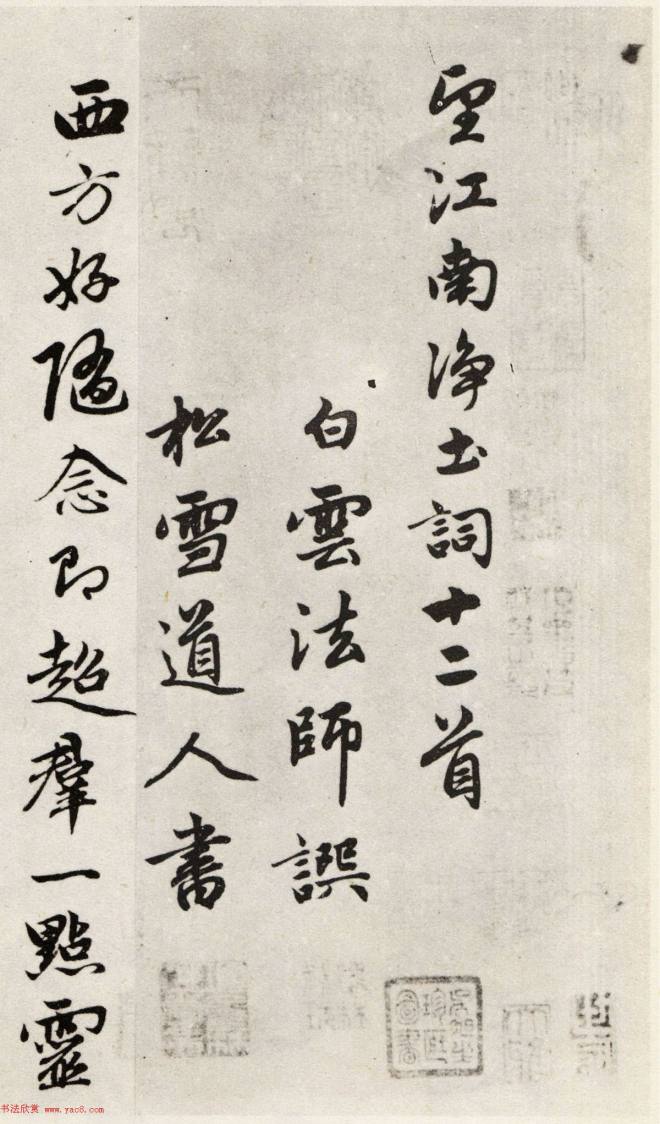 望江南浄土詞十二首
白雲法師譔
松雪道人書
西方好隨念即超羣一點靈
书法欣赏 www.yac8.com